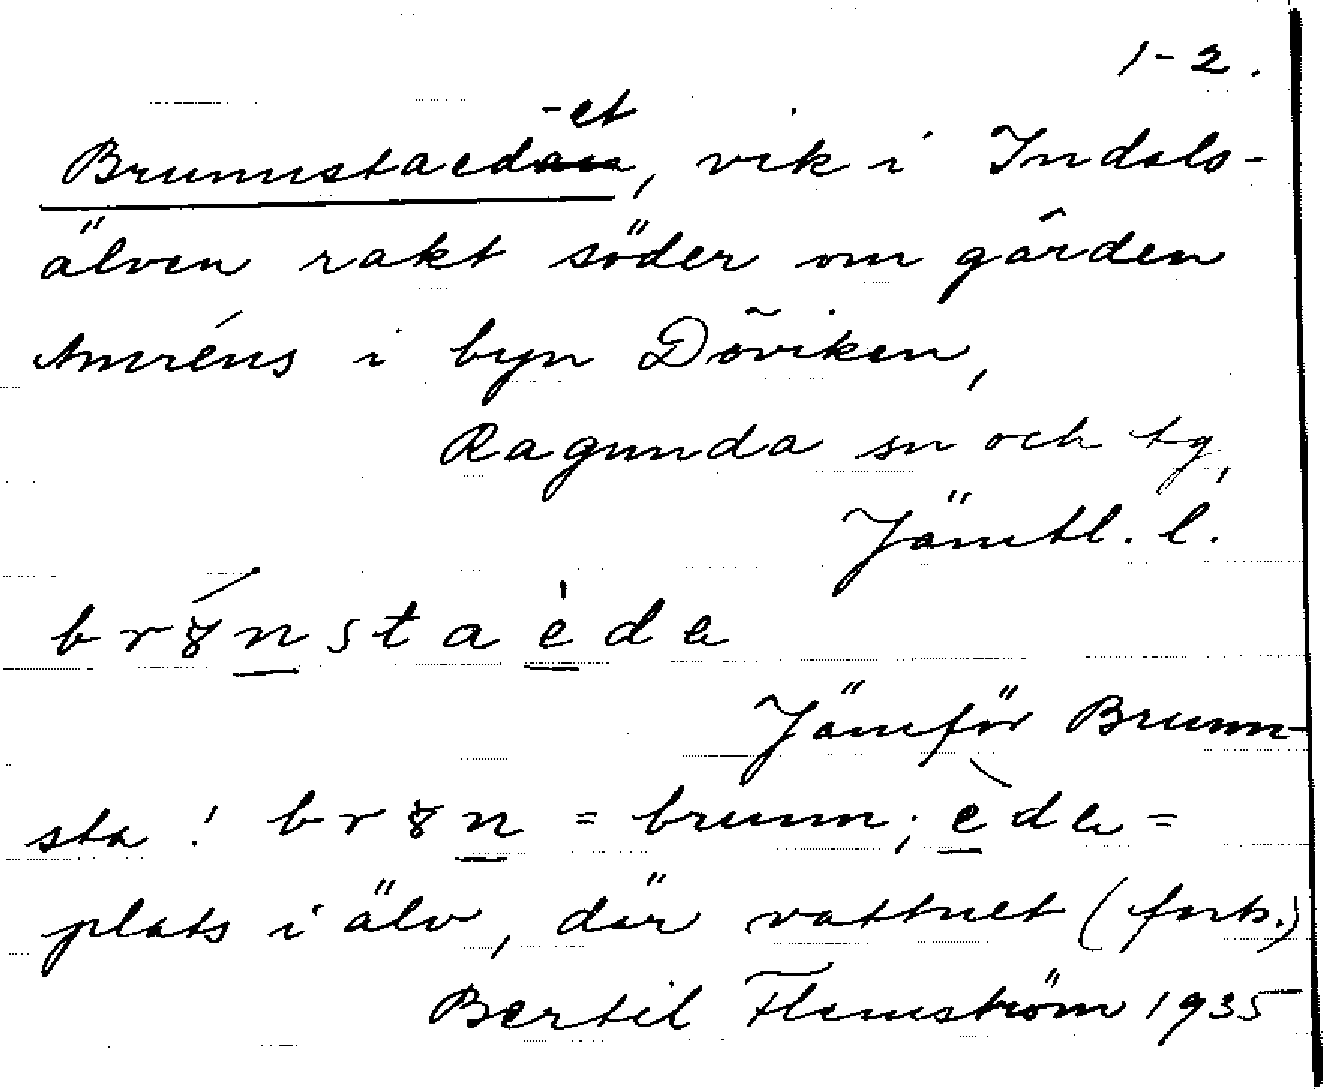 1-2.
-et
Brunnstaedan, vik i Indals-
älven rakt söder om gården
Amréns i byn Döviken,
Ragunda sn och tg,
Jämtl. l.
brȣnstaède
Jämför Brunn-
sta! brȣn = brunn; ède =
plats i älv, där vattnet (forts.)
Bertil Flemström 1935